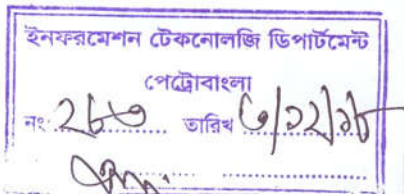 ইনফরমেশন টেকনোলজি ডিপার্টমেন্ট
পেট্রোবাংলা
নং: ২৮৩ তারিখ ৬/১২/১৮